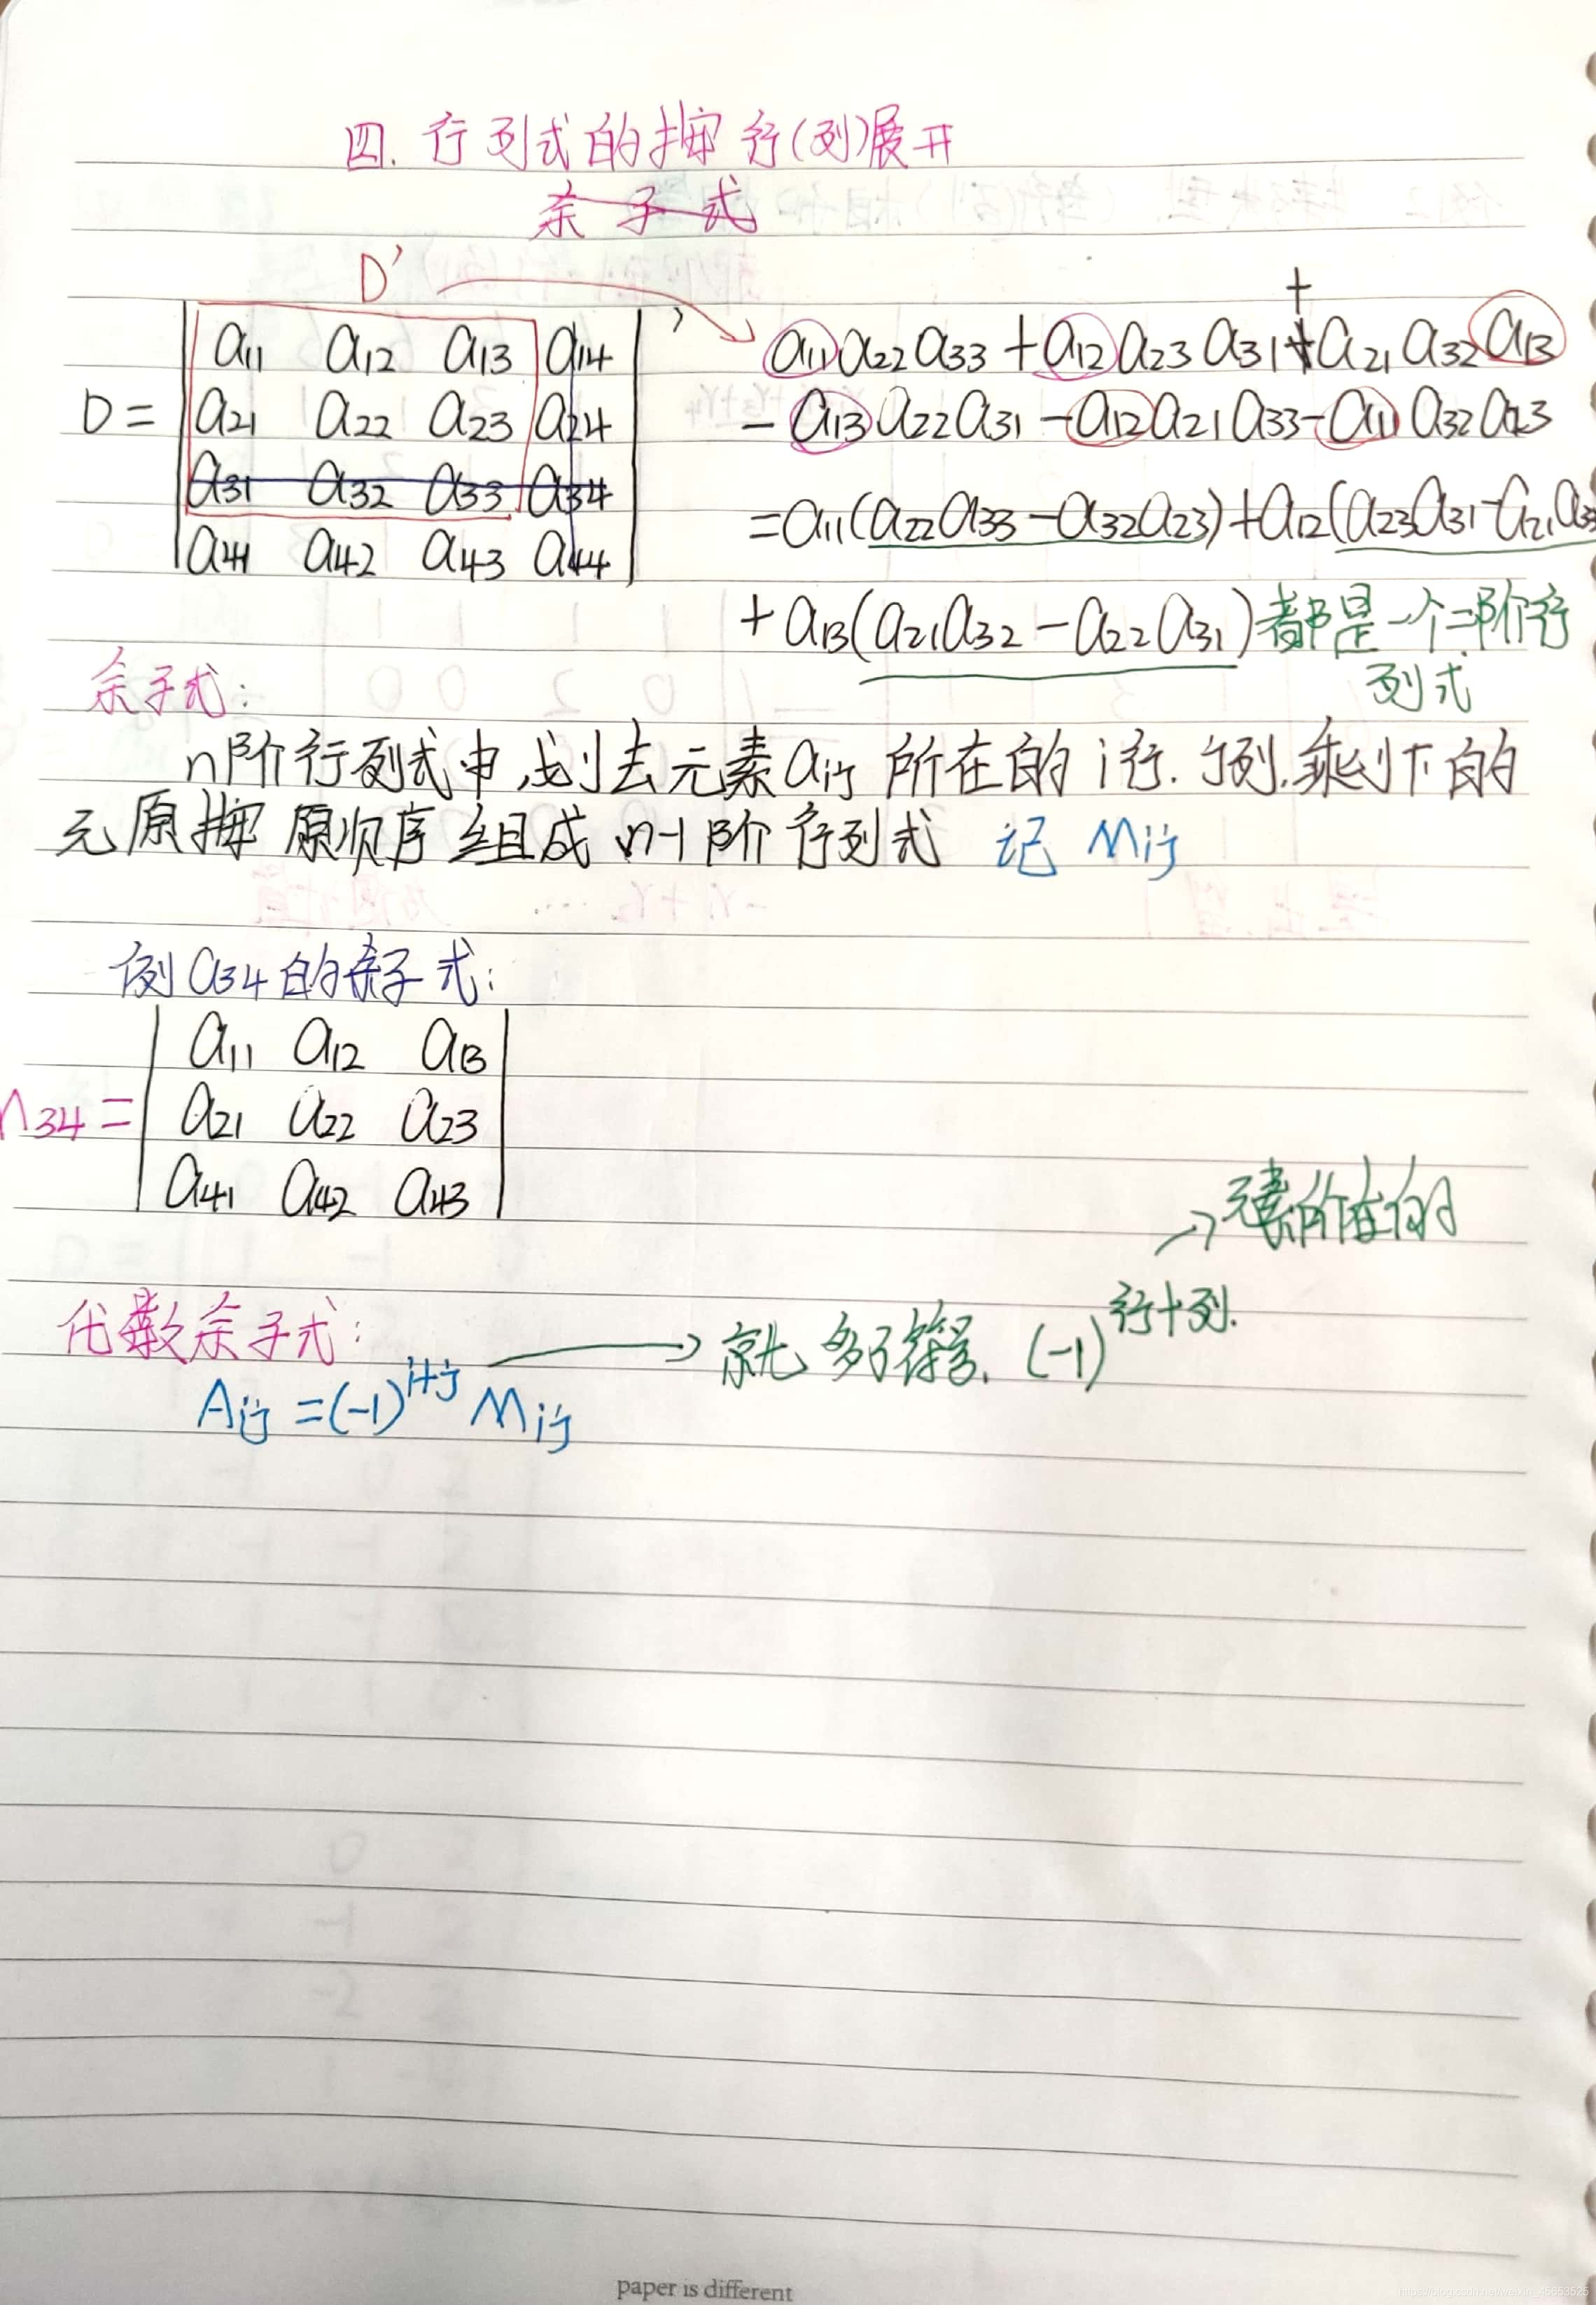 四. 行列式的按行(列)展开
余子式
D'
D = | a11 a12 a13 a14 |
| a21 a22 a23 a24 |
| a31 a32 a33 a34 |
| a41 a42 a43 a44 |
a11a22a33 + a12a23a31 + a21a32a13
- a13a22a31 - a12a21a33 - a11a32a23
= a11(a22a33 - a32a23) + a12(a23a31 - a21a33
+ a13(a21a32 - a22a31) 都是一个二阶行
列式
余子式:
n阶行列式中,划去元素aij 所在的i行. j列. 剩下的
元原按原顺序组成n-1阶行列式 记 Mij
例a34的余子式:
M34 = | a11 a12 a13 |
| a21 a22 a23 |
| a41 a42 a43 |
→元素所在的
代数余子式:
→ 就多了符号. (-1)^行+列.
Aij = (-1)^i+j Mij
paper is different